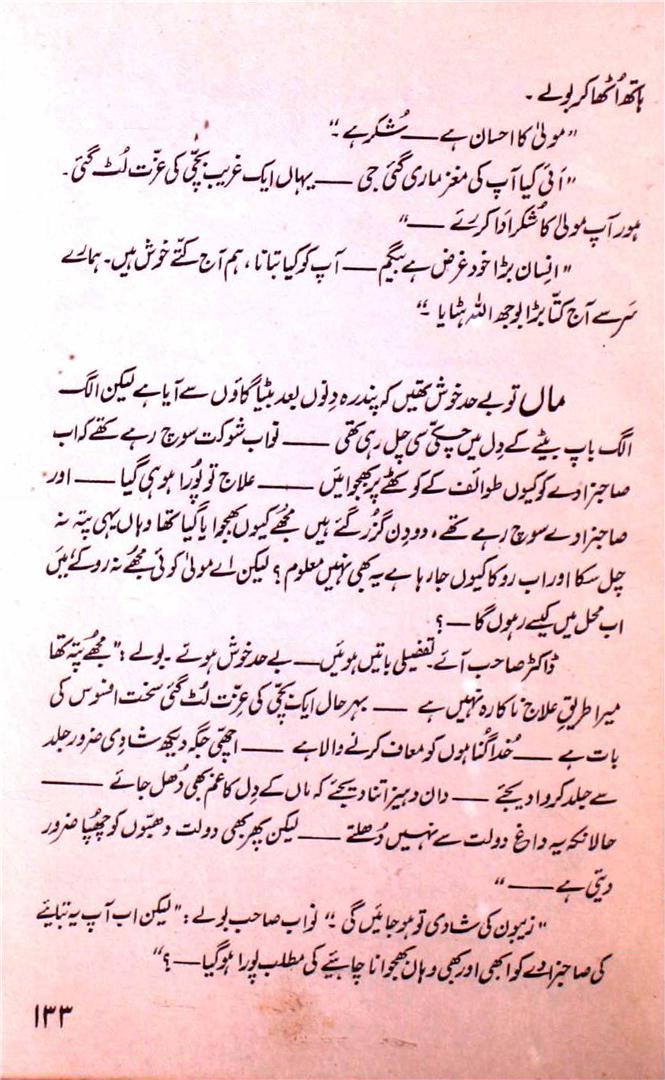 ہاتھ اُٹھا کر بولے ۔
”مولیٰ کا احسان ہے ـــــ شُکر ہے ۔“
”اَئی کیا آپ کی مغز ماری گئی جی ـــــ یہاں ایک غریب بچّی کی عزّت لُٹ گئی ۔
ہور آپ مولیٰ کا شُکر اَدا کرئے ـــــ“
”اِنسان بڑا خود غرض ہے بیگم ـــــ آپ کو کیا بَتانا ، ہم آج کتّے خوش ہیں ۔ ہمارے
سَر سے آج کِتّا بڑا بوجھ اللہ ہٹایا ۔“
ماں تو بے حد خوش تھیں کہ پندرہ دِنوں بعد بیٹا گاؤں سے آیا ہے لیکن الگ
الگ باپ بیٹے کے دِل میں چکّی سی چل رہی تھی ـــــ نواب شوکت سوچ رہے تھے کہ اب
صاحبزادے کو کیوں طوائف کے کوٹھے پر بھجوائیں ـــــ علاج تو پُورا ہو ہی گیا ـــــ اور
صاحبزادے سوچ رہے تھے ، دو دِن گُزر گئے ہیں مجھے کیوں بھجوایا گیا تھا وہاں یہی پتہ نہ
چل سکا اور اب روکا کیوں جارہا ہے یہ بھی نہیں معلوم ؟ لیکن اے مولیٰ کوئی مجھے نہ روکے ئیں
اب محل میں کیسے رہوں گا ـــــ ؟
ڈاکٹر صاحب آئے ۔ تفصیلی باتیں ہوئیں ـــــ بے حد خوش ہوئے ۔ بولے : ”مجھے پتہ تھا
میرا طریقِ علاج ناکارہ نہیں ہے ـــــ بہرحال ایک بچّی کی عِزّت لُٹ گئی سخت افسوس کی
بات ہے ـــــ خُدا گُناہوں کو معاف کرنے والا ہے ـــــ اچھّی جگہ دیکھ شادی ضرور جلد
سے جلد کروا دیجئے ـــــ دان دہیز اتنا دیجئے کہ ماں کے دِل کا غم بھی دُھل جائے ـــــ
حالانکہ یہ داغ دولت سے نہیں دُھلتے ـــــ لیکن پھر بھی دولت دھبّوں کو چھُپا ضرور
دیتی ہے ـــــ“
”زیبون کی شادی تو ہو جائیں گی ۔“ نواب صاحب بولے : ”لیکن اب آپ یہ بتایئے
کی صاحبزادے کو ابھی اور بھی وہاں بھجوانا چاہئیے کی مطلب پُورا ہو گیا ـــــ ؟“
۱۳۳